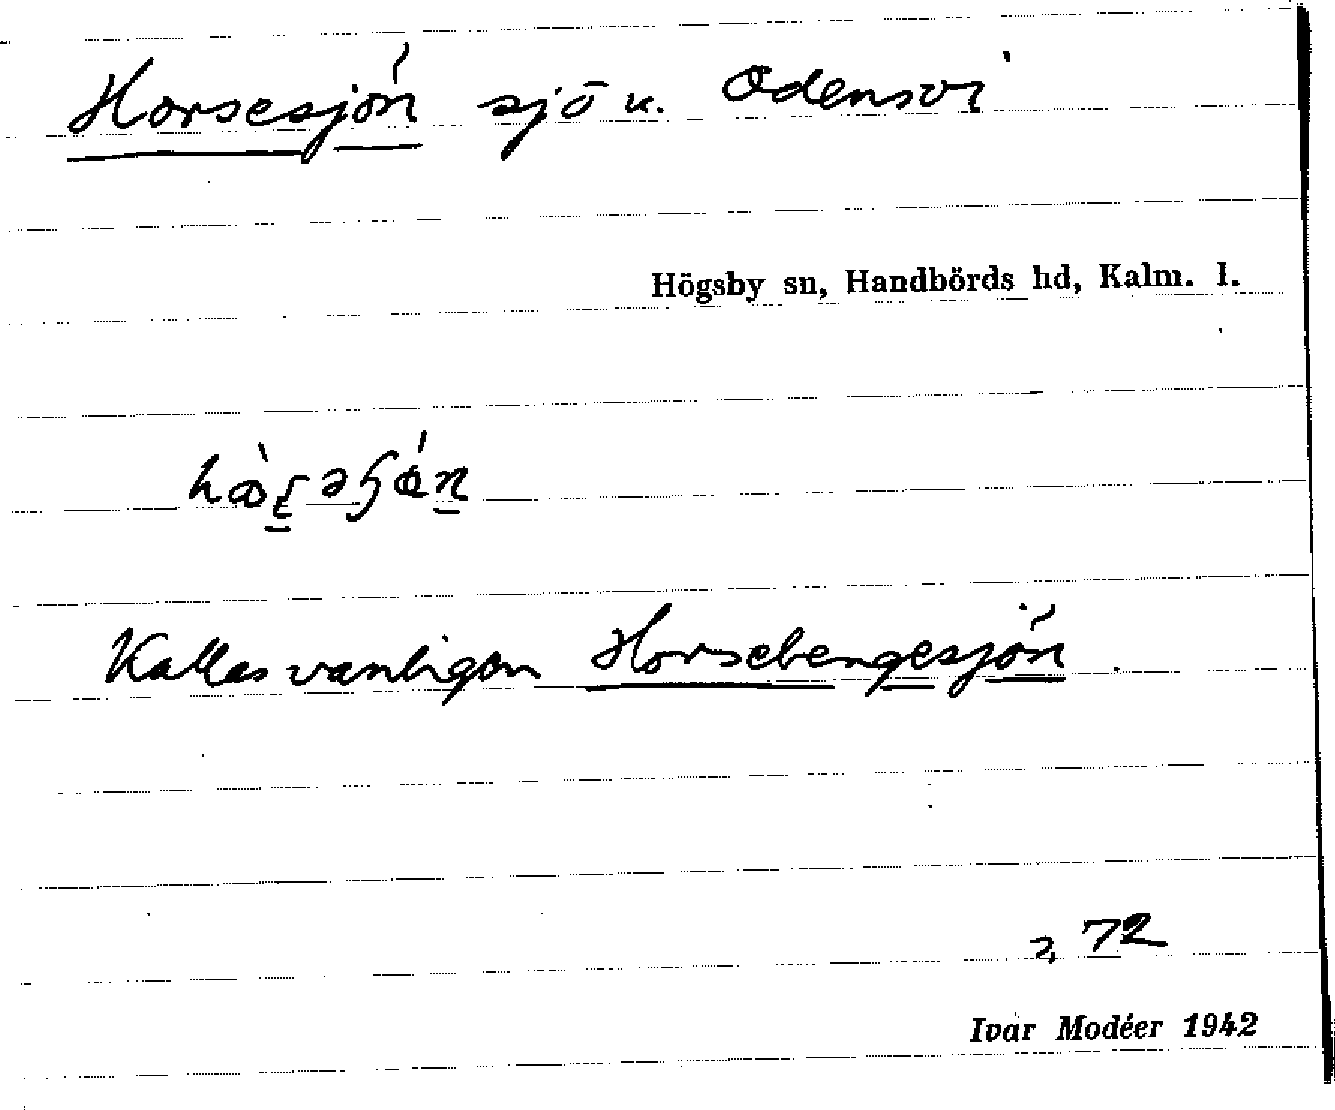 Horsesjön sjö u. Odensvi
Högsby sn, Handbörds hd, Kalm. l.
Kallas vanligen Horsebengesjön
2, 72
Ivar Modéer 1942